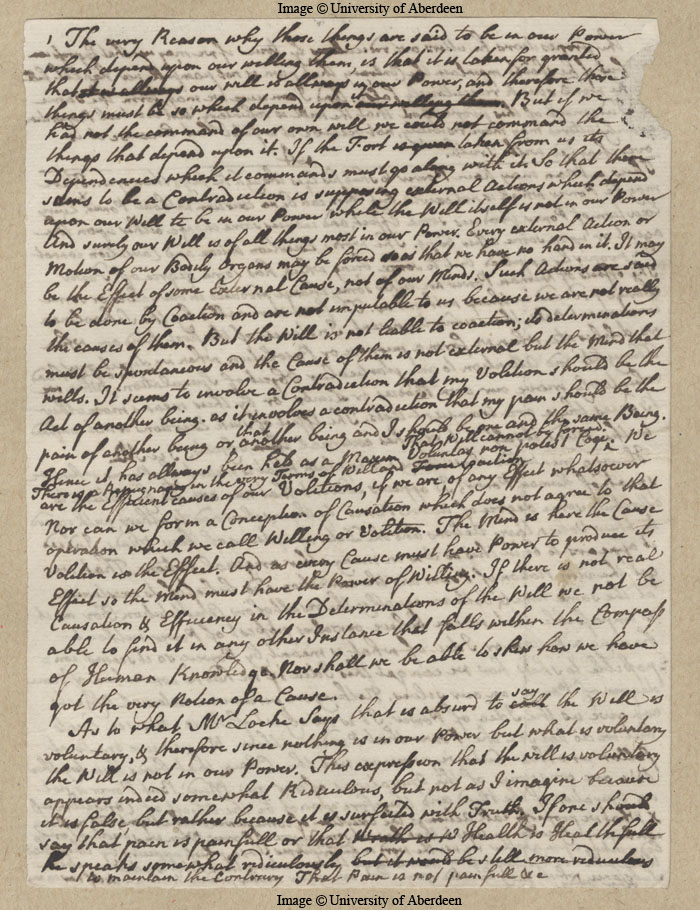 Image © University of Aberdeen
1 The very Reason why those things are said to be in our Power
which depend upon our willing them, is that it is taken for granted
that our will is allways in our Power, and therefore those
things must be so which depend upon it. But if we
had not the command of our own will we could not command the
things that depend upon it. If the Fort is taken from us its
Dependencies which it commands must go along with it. So that there
seems to be a Contradiction in supposing external Actions which depend
upon our Will to be in our Power while the Will itself is not in our Power
And surely our Will is of all things most in our Power. Every external Action or
Motion of our Bodily Organs may be forced so as that we have no hand in it. It may
be the Effect of some External Cause, not of our Minds. Such Actions are said
to be done by Coaction and are not imputable to us because we are not really
the causes of them. But the Will is not liable to coaction; its determinations
must be spontaneous and the Cause of them is not external but the Mind that
wills. It seems to involve a Contradiction that my Volition should be the
Act of another being. as it involves a contradiction that my pain should be the
pain of another being or that another being and I should be one and the same Being.
Hence it has allways been held as a Maxim That Will cannot be forced. Voluntas non potest Cogi. We
There is a Repugnancy in the very Terms of Will and Coaction
are the Efficient causes of our Volitions, if we are of any Effect whatsoever
Nor can we form a Conception of Causation which does not agree to that
operation which we call Willing or Volition. The Mind is here the Cause
Volition is the Effect. And as every Cause must have Power to produce its
Effect so the Mind must have the Power of Willing. If there is not real
Causation & Efficiency in the Determinations of the Will we not be
able to find it in any other Instance that falls within the Compass
of Human Knowledge. Nor shall we be able to shew how we have
got the very Notion of a Cause.
As to what Mr Locke Says that is absurd to say the Will is
voluntary, & therefore since nothing is in our Power but what is voluntary
the Will is not in our Power. This expression that the will is voluntary
appears indeed somewhat Ridiculous, but not as I imagine because
it is false, but rather because it is surfeited with Truth, If one should
say that pain is painfull or that Health is Healthfull
he speaks somewhat ridiculously but it would be still more rediculous
to maintain the Contrary That Pain is not painfull &c
Image © University of Aberdeen